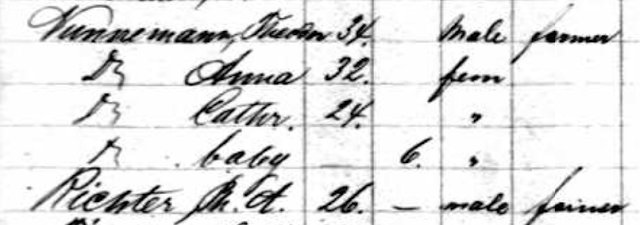 Nunnemann, Theodor 34. Male farmer
Do Anna 32. fem
Do Cathr. 24. "
Do baby 6. "
Richter M. A. 26. — male farmer